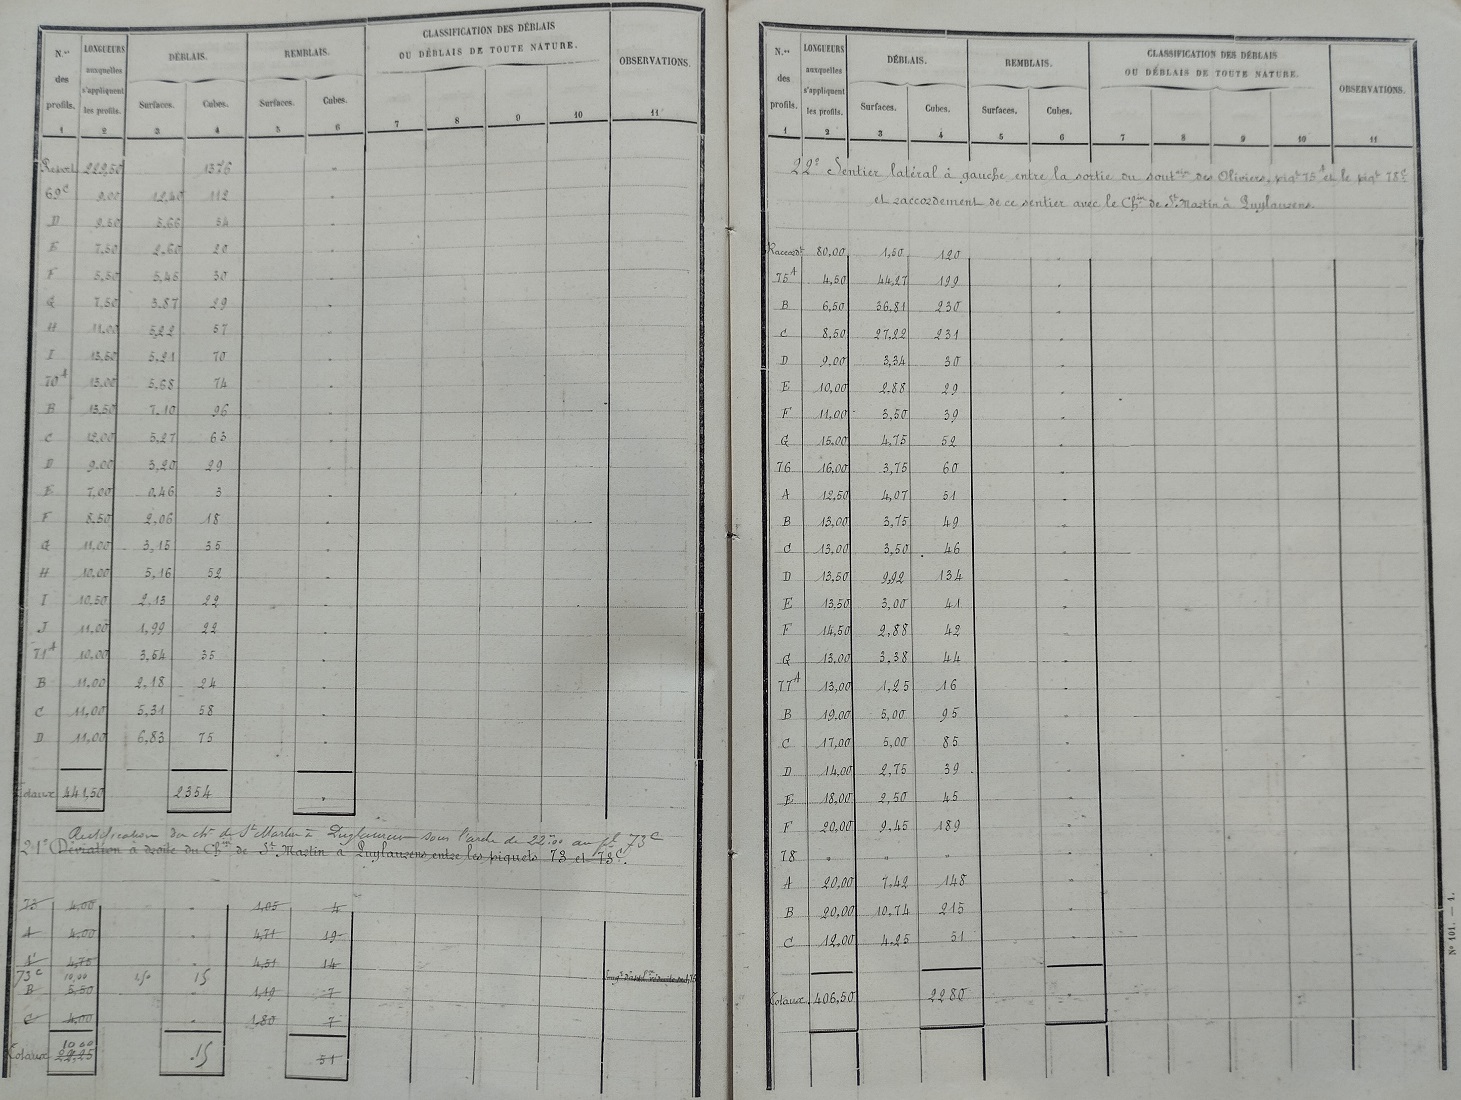 N.os des profils. | LONGUEURS auxquelles s'appliquent les profils. | DÉBLAIS. Surfaces. | Cubes. | REMBLAIS. Surfaces. | Cubes. | CLASSIFICATION DES DÉBLAIS OU DÉBLAIS DE TOUTE NATURE. | OBSERVATIONS.
1 | 2 | 3 | 4 | 5 | 6 | 7 | 8 | 9 | 10 | 11
Report | 222,50 | 1376
69 C | 9,00 | 12,40 | 112
D | 9,50 | 5,66 | 54
E | 7,50 | 2,60 | 20
F | 5,50 | 5,45 | 30
G | 7,50 | 3,87 | 29
H | 11,00 | 5,22 | 57
I | 13,50 | 5,21 | 70
70 A | 13,00 | 5,68 | 74
B | 13,50 | 7,10 | 96
C | 12,00 | 5,27 | 63
D | 9,00 | 3,20 | 29
E | 7,00 | 0,46 | 3
F | 8,50 | 2,06 | 18
G | 11,00 | 3,15 | 35
H | 10,00 | 5,16 | 52
I | 10,50 | 2,13 | 22
J | 11,00 | 1,99 | 22
71 A | 10,00 | 3,54 | 35
B | 11,00 | 2,18 | 24
C | 11,00 | 5,31 | 58
D | 11,00 | 6,83 | 75
Totaux | 441,50 | 2354
Rectification du ch. de St Martin à Puylaurens sous l'arche de 22m00 au pl 73 C
21° Déviation à droite du Chin de St Martin à Puylaurens entre les piquets 73 et 73 C.
73 | 4,00 | 1,05 | 4
A | 4,00 | 4,71 | 19
A' | 4,75 | 4,51 | 14
73 C | 10,00 | 1,50 | 15
B | 5,50 | 1,19 | 7
C | 4,00 | 1,80 | 7
10 00
Totaux | 22,25 | 15 | 51
N.os des profils. | LONGUEURS auxquelles s'appliquent les profils. | DÉBLAIS. Surfaces. | Cubes. | REMBLAIS. Surfaces. | Cubes. | CLASSIFICATION DES DÉBLAIS OU DÉBLAIS DE TOUTE NATURE. | OBSERVATIONS.
1 | 2 | 3 | 4 | 5 | 6 | 7 | 8 | 9 | 10 | 11
22° Sentier latéral à gauche entre la sortie du soutain des Oliviers, piqt 75 A et le piqt 78 C
et raccordement de ce sentier avec le Chin de St Martin à Puylaurens.
Raccordt | 80,00 | 1,50 | 120
75 A | 4,50 | 44,27 | 199
B | 6,50 | 36,81 | 230
C | 8,50 | 27,22 | 231
D | 9,00 | 3,34 | 30
E | 10,00 | 2,88 | 29
F | 11,00 | 3,50 | 39
G | 15,00 | 4,75 | 52
76 | 16,00 | 3,75 | 60
A | 12,50 | 4,07 | 51
B | 13,00 | 3,75 | 49
C | 13,00 | 3,50 | 46
D | 13,50 | 9,92 | 134
E | 13,50 | 3,00 | 41
F | 14,50 | 2,88 | 42
G | 13,00 | 3,38 | 44
77 A | 13,00 | 1,25 | 16
B | 19,00 | 5,00 | 95
C | 17,00 | 5,00 | 85
D | 14,00 | 2,75 | 39
E | 18,00 | 2,50 | 45
F | 20,00 | 9,45 | 189
78
A | 20,00 | 7,42 | 148
B | 20,00 | 10,74 | 215
C | 12,00 | 4,25 | 51
Totaux | 406,50 | 2280
N° 101. — 1.